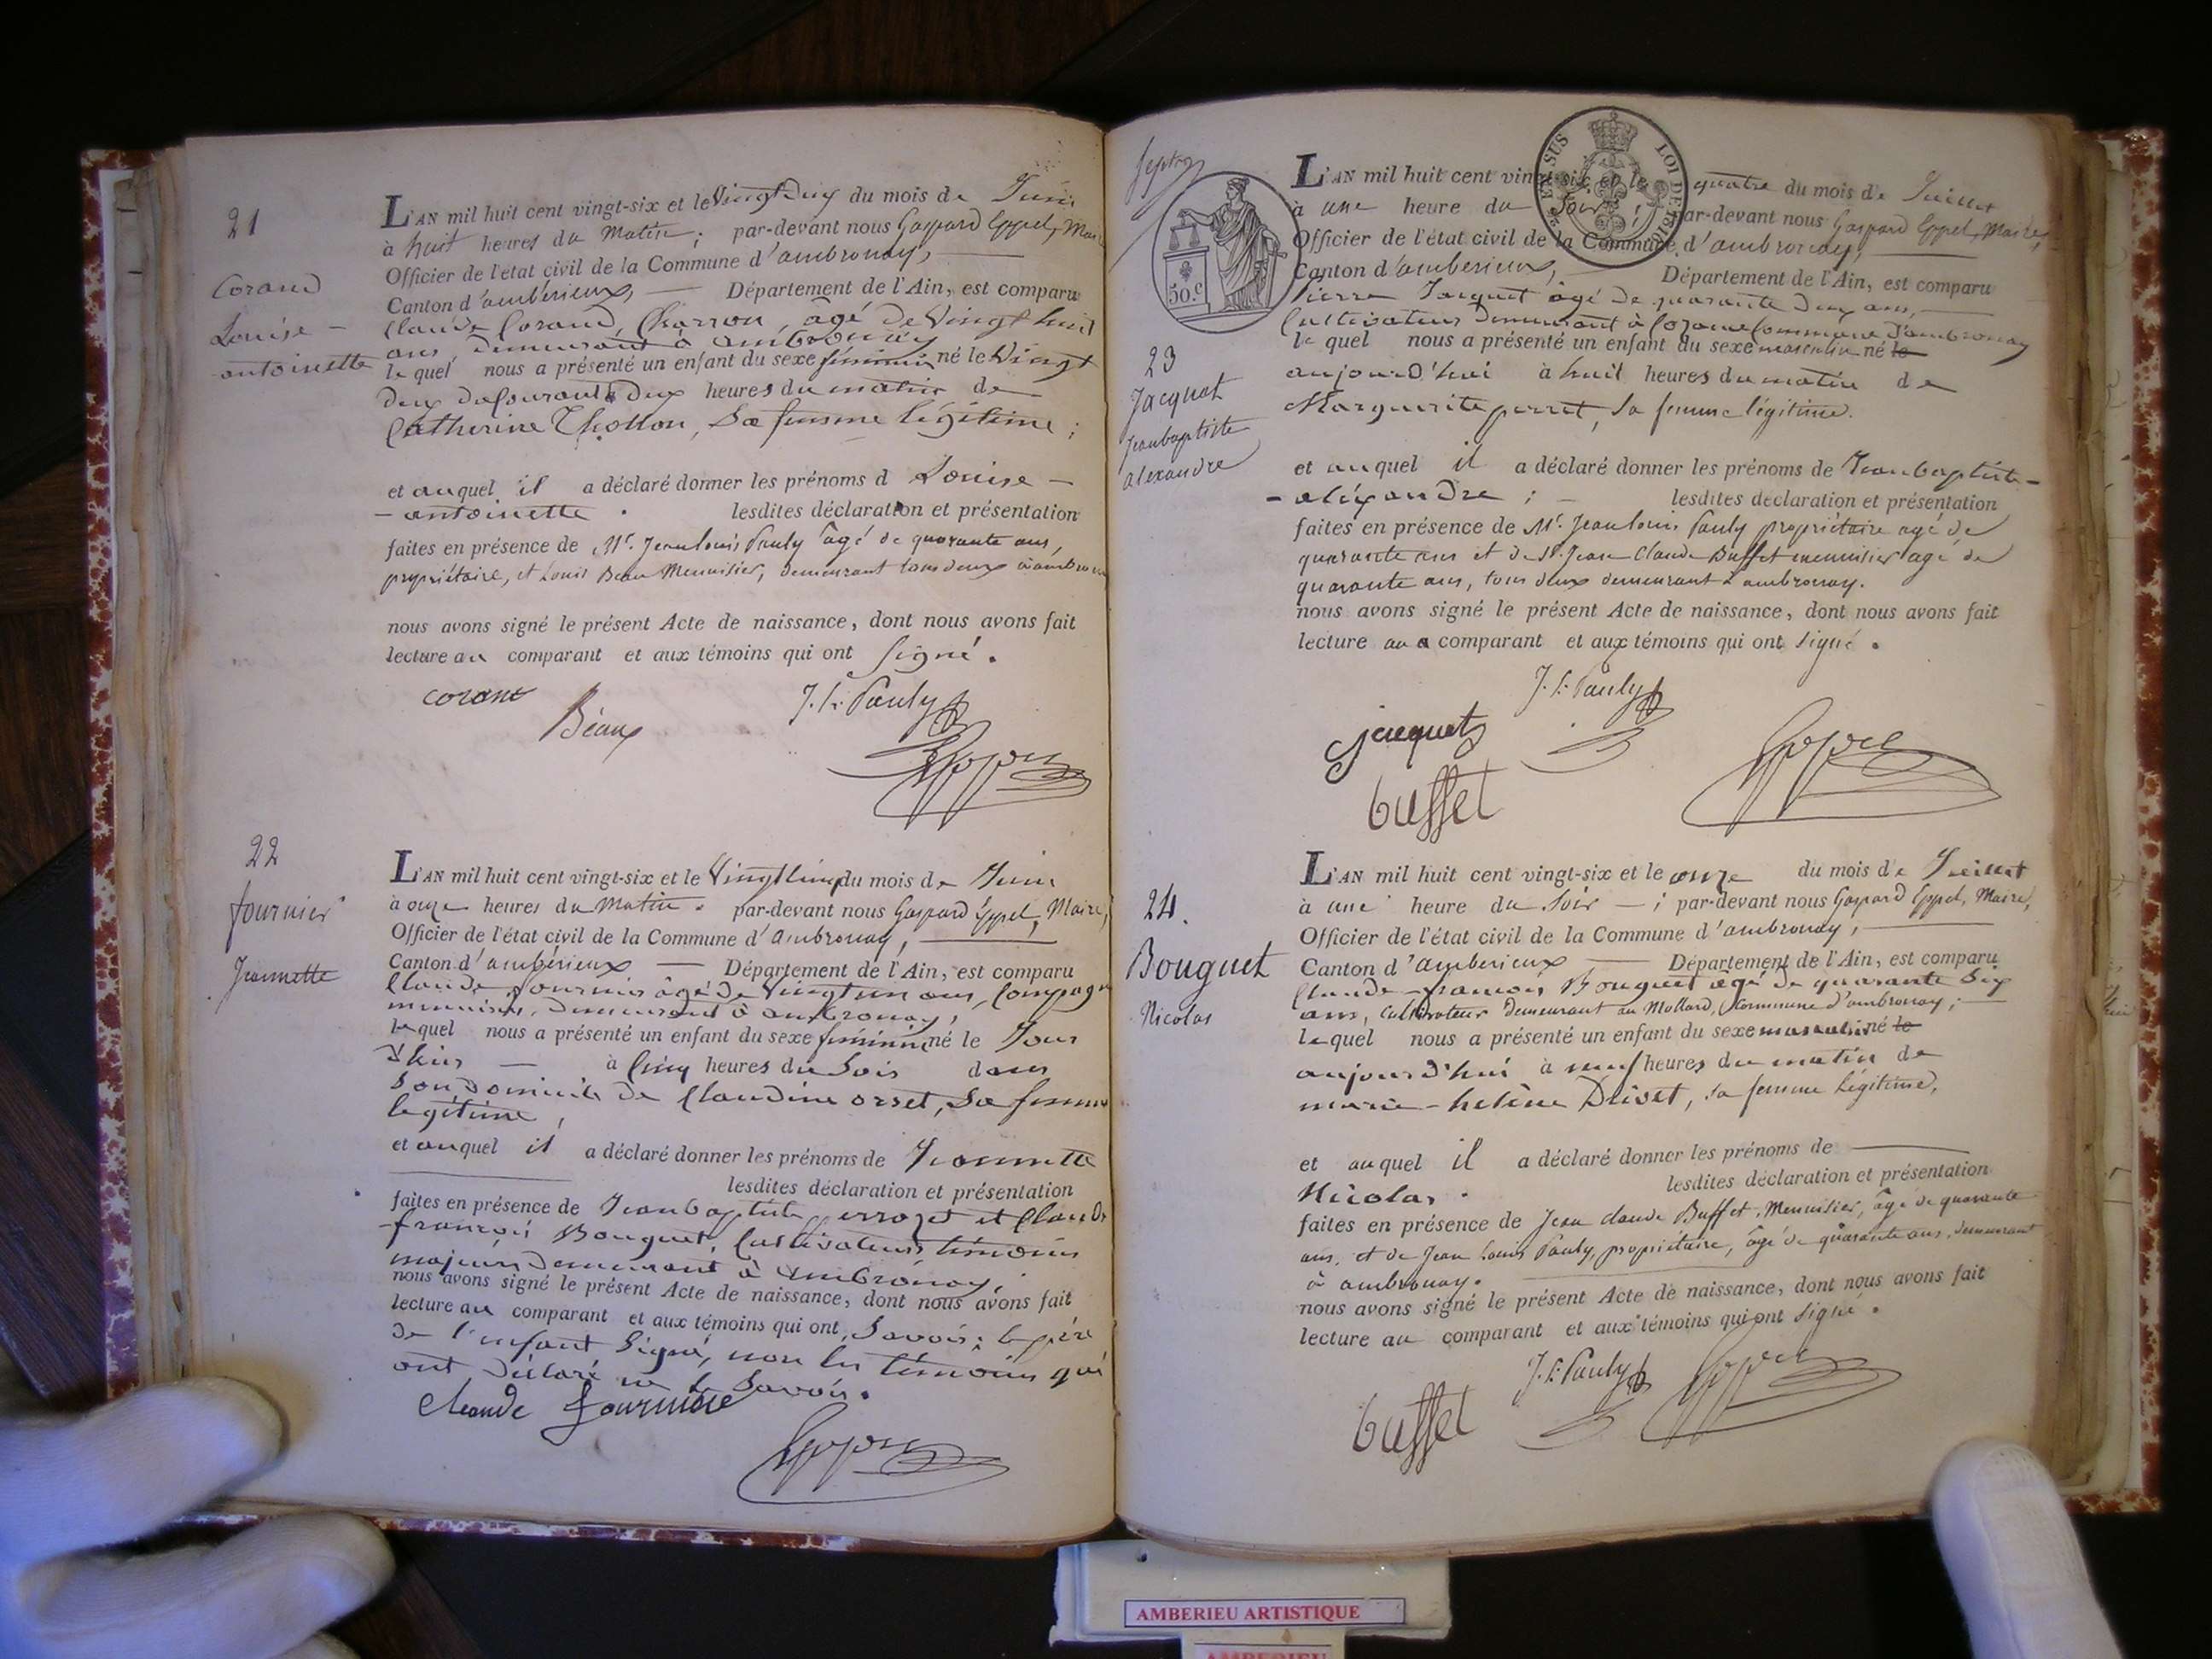 21
Corand
Louise -
antoinette
L'AN mil huit cent vingt-six et le Vingt Deux du mois de Juin
à huit heures du Matin ; par-devant nous Gaspard Eppel, Maire
Officier de l'état civil de la Commune d'ambronay,
Canton d'ambérieux, Département de l'Ain, est comparu
Claude Corand, Charron, âgé de Vingt huit
ans, demeurant à ambronay
lequel nous a présenté un enfant du sexe féminin né le Vingt
deux du Courant à Deux heures du matin de
Catherine Thollon, Sa femme légitime ;
et auquel il a déclaré donner les prénoms d Louise -
- antoinette . lesdites déclaration et présentation
faites en présence de Mr. Jean louis Pauly âgé de quarante ans,
propriétaire, et Louis Beau Menuisier, demeurant tous deux à
nous avons signé le présent Acte de naissance, dont nous avons fait
lecture au comparant et aux témoins qui ont signé.
corant
Béaux
J. L. Pauly
Eppel
22
fournier
Jeannette
L'AN mil huit cent vingt-six et le Vingt Cinq du mois de Juin
à onze heures du Matin . par-devant nous Gaspard Eppel, Maire,
Officier de l'état civil de la Commune d'Ambronay,
Canton d'ambérieux Département de l'Ain, est comparu
Claude fournier âgé de Vingt un ans, Compagn
menuisier, demeurant à ambronay,
lequel nous a présenté un enfant du sexe féminin né le Jour
d'hier à Cinq heures du Soir dans
Son domicile de Claudine orset, Sa femme
légitime,
et auquel il a déclaré donner les prénoms de Jeannette
lesdites déclaration et présentation
faites en présence de Jean baptiste et Claude
françois Bouguet, Cultivateurs témoins
majeurs demeurant à Ambronay,
nous avons signé le présent Acte de naissance, dont nous avons fait
lecture au comparant et aux témoins qui ont, Savoir : le père
de l'enfant Signé, non les témoins qui
ont déclaré ne le Savoir.
claude fournier
Eppel
50.c
LOI DE 1816
23
Jacquet
Jean baptiste
alexandre
L'AN mil huit cent vingt-six et le quatre du mois de Juillet
à une heure du Soir ; par-devant nous Gaspard Eppel, Maire,
Officier de l'état civil de la Commune d'ambronay,
Canton d'amberieux, Département de l'Ain, est comparu
Pierre Jacquet âgé de quarante deux ans,
Cultivateur demeurant à Commune d'ambronay
lequel nous a présenté un enfant du sexe masculin né le
aujourd'hui à huit heures du matin de
Marguerite perret, Sa femme légitime.
et auquel il a déclaré donner les prénoms de Jean baptiste -
- aléxandre ; - lesdites déclaration et présentation
faites en présence de Mr. Jean louis Pauly propriétaire agé de
quarante ans et de Sr. Jean Claude Buffet menuisier agé de
quarante ans, tous deux demeurant à ambronay.
nous avons signé le présent Acte de naissance, dont nous avons fait
lecture au comparant et aux témoins qui ont signé .
J. L. Pauly
jacquet
Eppel
buffet
24.
Bouguet
Nicolas
L'AN mil huit cent vingt-six et le onze du mois de Juillet
à une heure du Soir - ; par-devant nous Gaspard Eppel, Maire,
Officier de l'état civil de la Commune d'ambronay,
Canton d'amberieux Département de l'Ain, est comparu
Claude - françois Bouguet âgé de quarante Six
ans, Cultivateur demeurant au Mollard, Commune d'ambronay ;
lequel nous a présenté un enfant du sexe masculin né le
aujourd'hui à neuf heures du matin de
marie - helène Drivet, sa femme légitime,
et auquel il a déclaré donner les prénoms de
Nicolas . lesdites déclaration et présentation
faites en présence de Jean claude Buffet, Menuisier, âgé de quarante
ans, et de Jean Louis Pauly, propriétaire, âgé de quarante ans, demeurant
à ambronay.
nous avons signé le présent Acte de naissance, dont nous avons fait
lecture au comparant et aux témoins qui ont signé .
J. L. Pauly
Eppel
buffet
AMBERIEU ARTISTIQUE
AMBERIEU